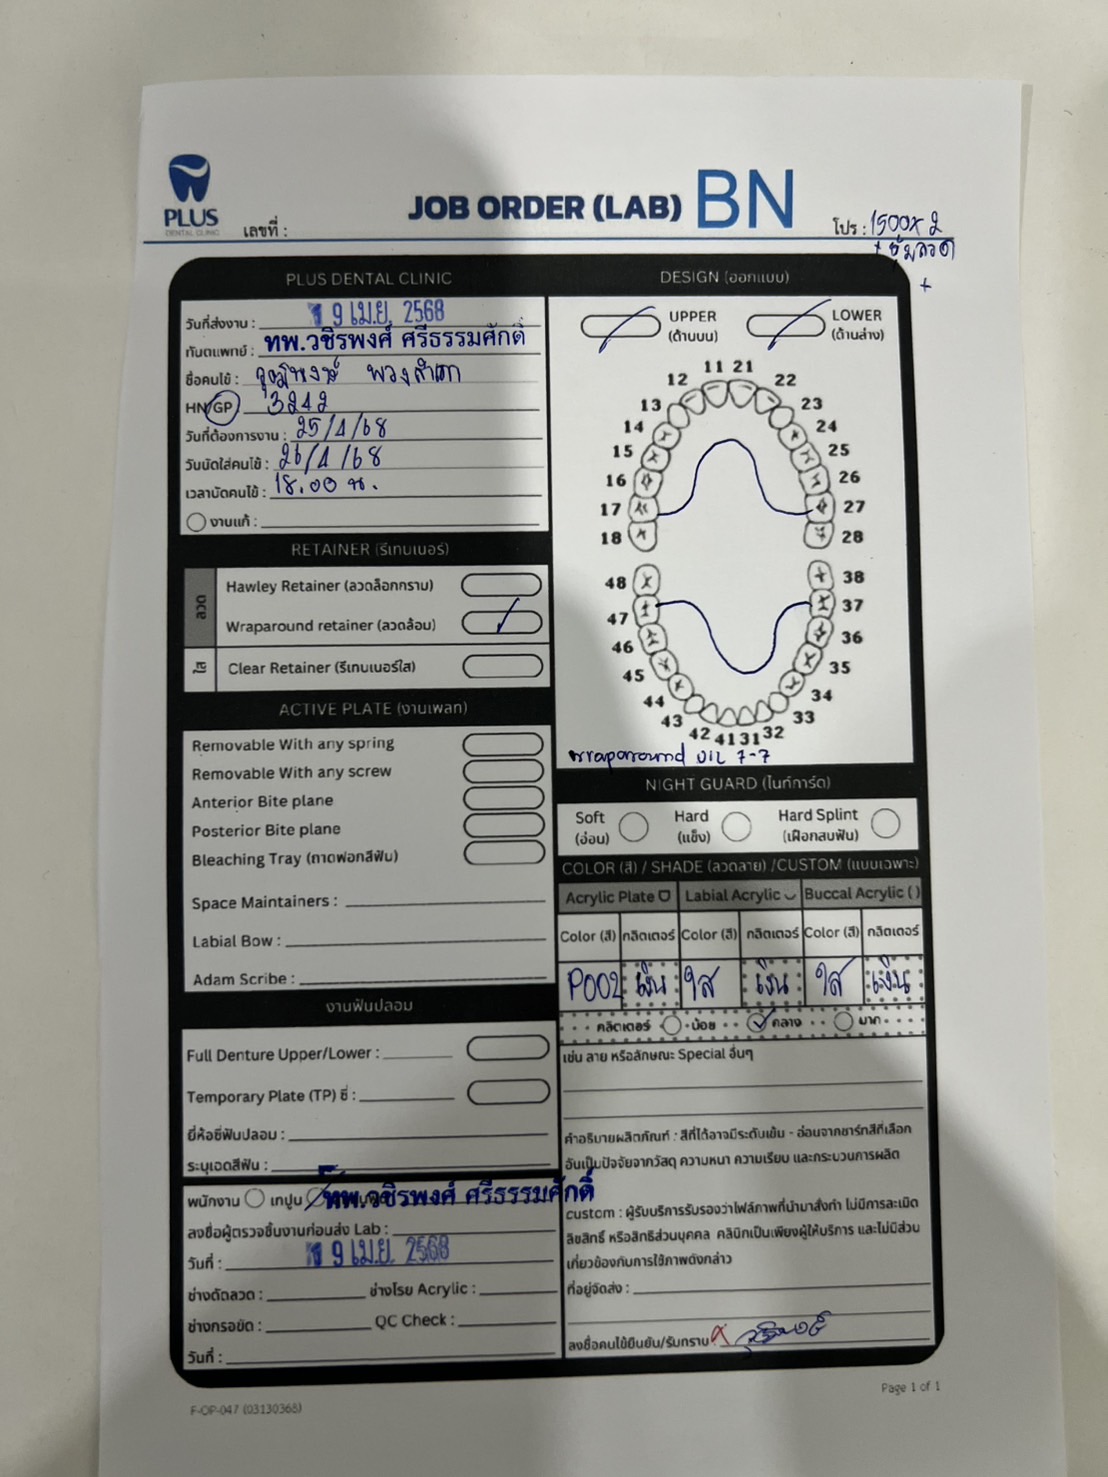 PLUS
DENTAL CLINIC
เลขที่ :
JOB ORDER (LAB) BN
โปร : 1500x2
+
PLUS DENTAL CLINIC
วันที่ส่งงาน : 19 เม.ย. 2568
ทันตแพทย์ : ทพ.วชิรพงศ์ ศรีธรรมศักดิ์
ชื่อคนไข้ :
HN/GP 3242
วันที่ต้องการงาน : 25/4/68
วันนัดใส่คนไข้ : 26/4/68
เวลานัดคนไข้ : 18.00 น.
งานแก้ :
RETAINER (รีเทนเนอร์)
ลวด
Hawley Retainer (ลวดล็อกกราม)
Wraparound retainer (ลวดล้อม)
ใส
Clear Retainer (รีเทนเนอร์ใส)
ACTIVE PLATE (งานเพลท)
Removable With any spring
Removable With any screw
Anterior Bite plane
Posterior Bite plane
Bleaching Tray (ถาดฟอกสีฟัน)
Space Maintainers :
Labial Bow :
Adam Scribe :
งานฟันปลอม
Full Denture Upper/Lower :
Temporary Plate (TP) ซี่ :
ยี่ห้อซี่ฟันปลอม :
ระบุเฉดสีฟัน :
พนักงาน เทปูน ทพ.วชิรพงศ์ ศรีธรรมศักดิ์
ลงชื่อผู้ตรวจชิ้นงานก่อนส่ง Lab :
วันที่ : 19 เม.ย. 2568
ช่างดัดลวด : ช่างโรย Acrylic :
ช่างกรอขัด : QC Check :
วันที่ :
DESIGN (ออกแบบ)
UPPER
(ด้านบน)
LOWER
(ด้านล่าง)
11 21
12 22
13 23
14 24
15 25
16 26
17 27
18 28
48 38
47 37
46 36
45 35
44 34
43 33
42 41 31 32
wraparound U/L 7-7
NIGHT GUARD (ไนท์การ์ด)
Soft
(อ่อน)
Hard
(แข็ง)
Hard Splint
(เฝือกสบฟัน)
COLOR (สี) / SHADE (ลวดลาย) /CUSTOM (แบบเฉพาะ)
Acrylic Plate Labial Acrylic Buccal Acrylic ( )
Color (สี) กลิตเตอร์ Color (สี) กลิตเตอร์ Color (สี) กลิตเตอร์
P002 เงิน ใส เงิน ใส เงิน
กลิตเตอร์ น้อย กลาง มาก
เช่น ลาย หรือลักษณะ Special อื่นๆ
คำอธิบายผลิตภัณฑ์ : สีที่ได้อาจมีระดับเข้ม - อ่อนจากชาร์ทสีที่เลือก
อันเป็นปัจจัยจากวัสดุ ความหนา ความเรียบ และกระบวนการผลิต
custom : ผู้รับบริการรับรองว่าไฟล์ภาพที่นำมาสั่งทำ ไม่มีการละเมิด
ลิขสิทธิ์ หรือสิทธิส่วนบุคคล คลินิกเป็นเพียงผู้ให้บริการ และไม่มีส่วน
เกี่ยวข้องกับการใช้ภาพดังกล่าว
ที่อยู่จัดส่ง :
ลงชื่อคนไข้ยืนยัน/รับทราบ
Page 1 of 1
F-OP-047 (03130368)